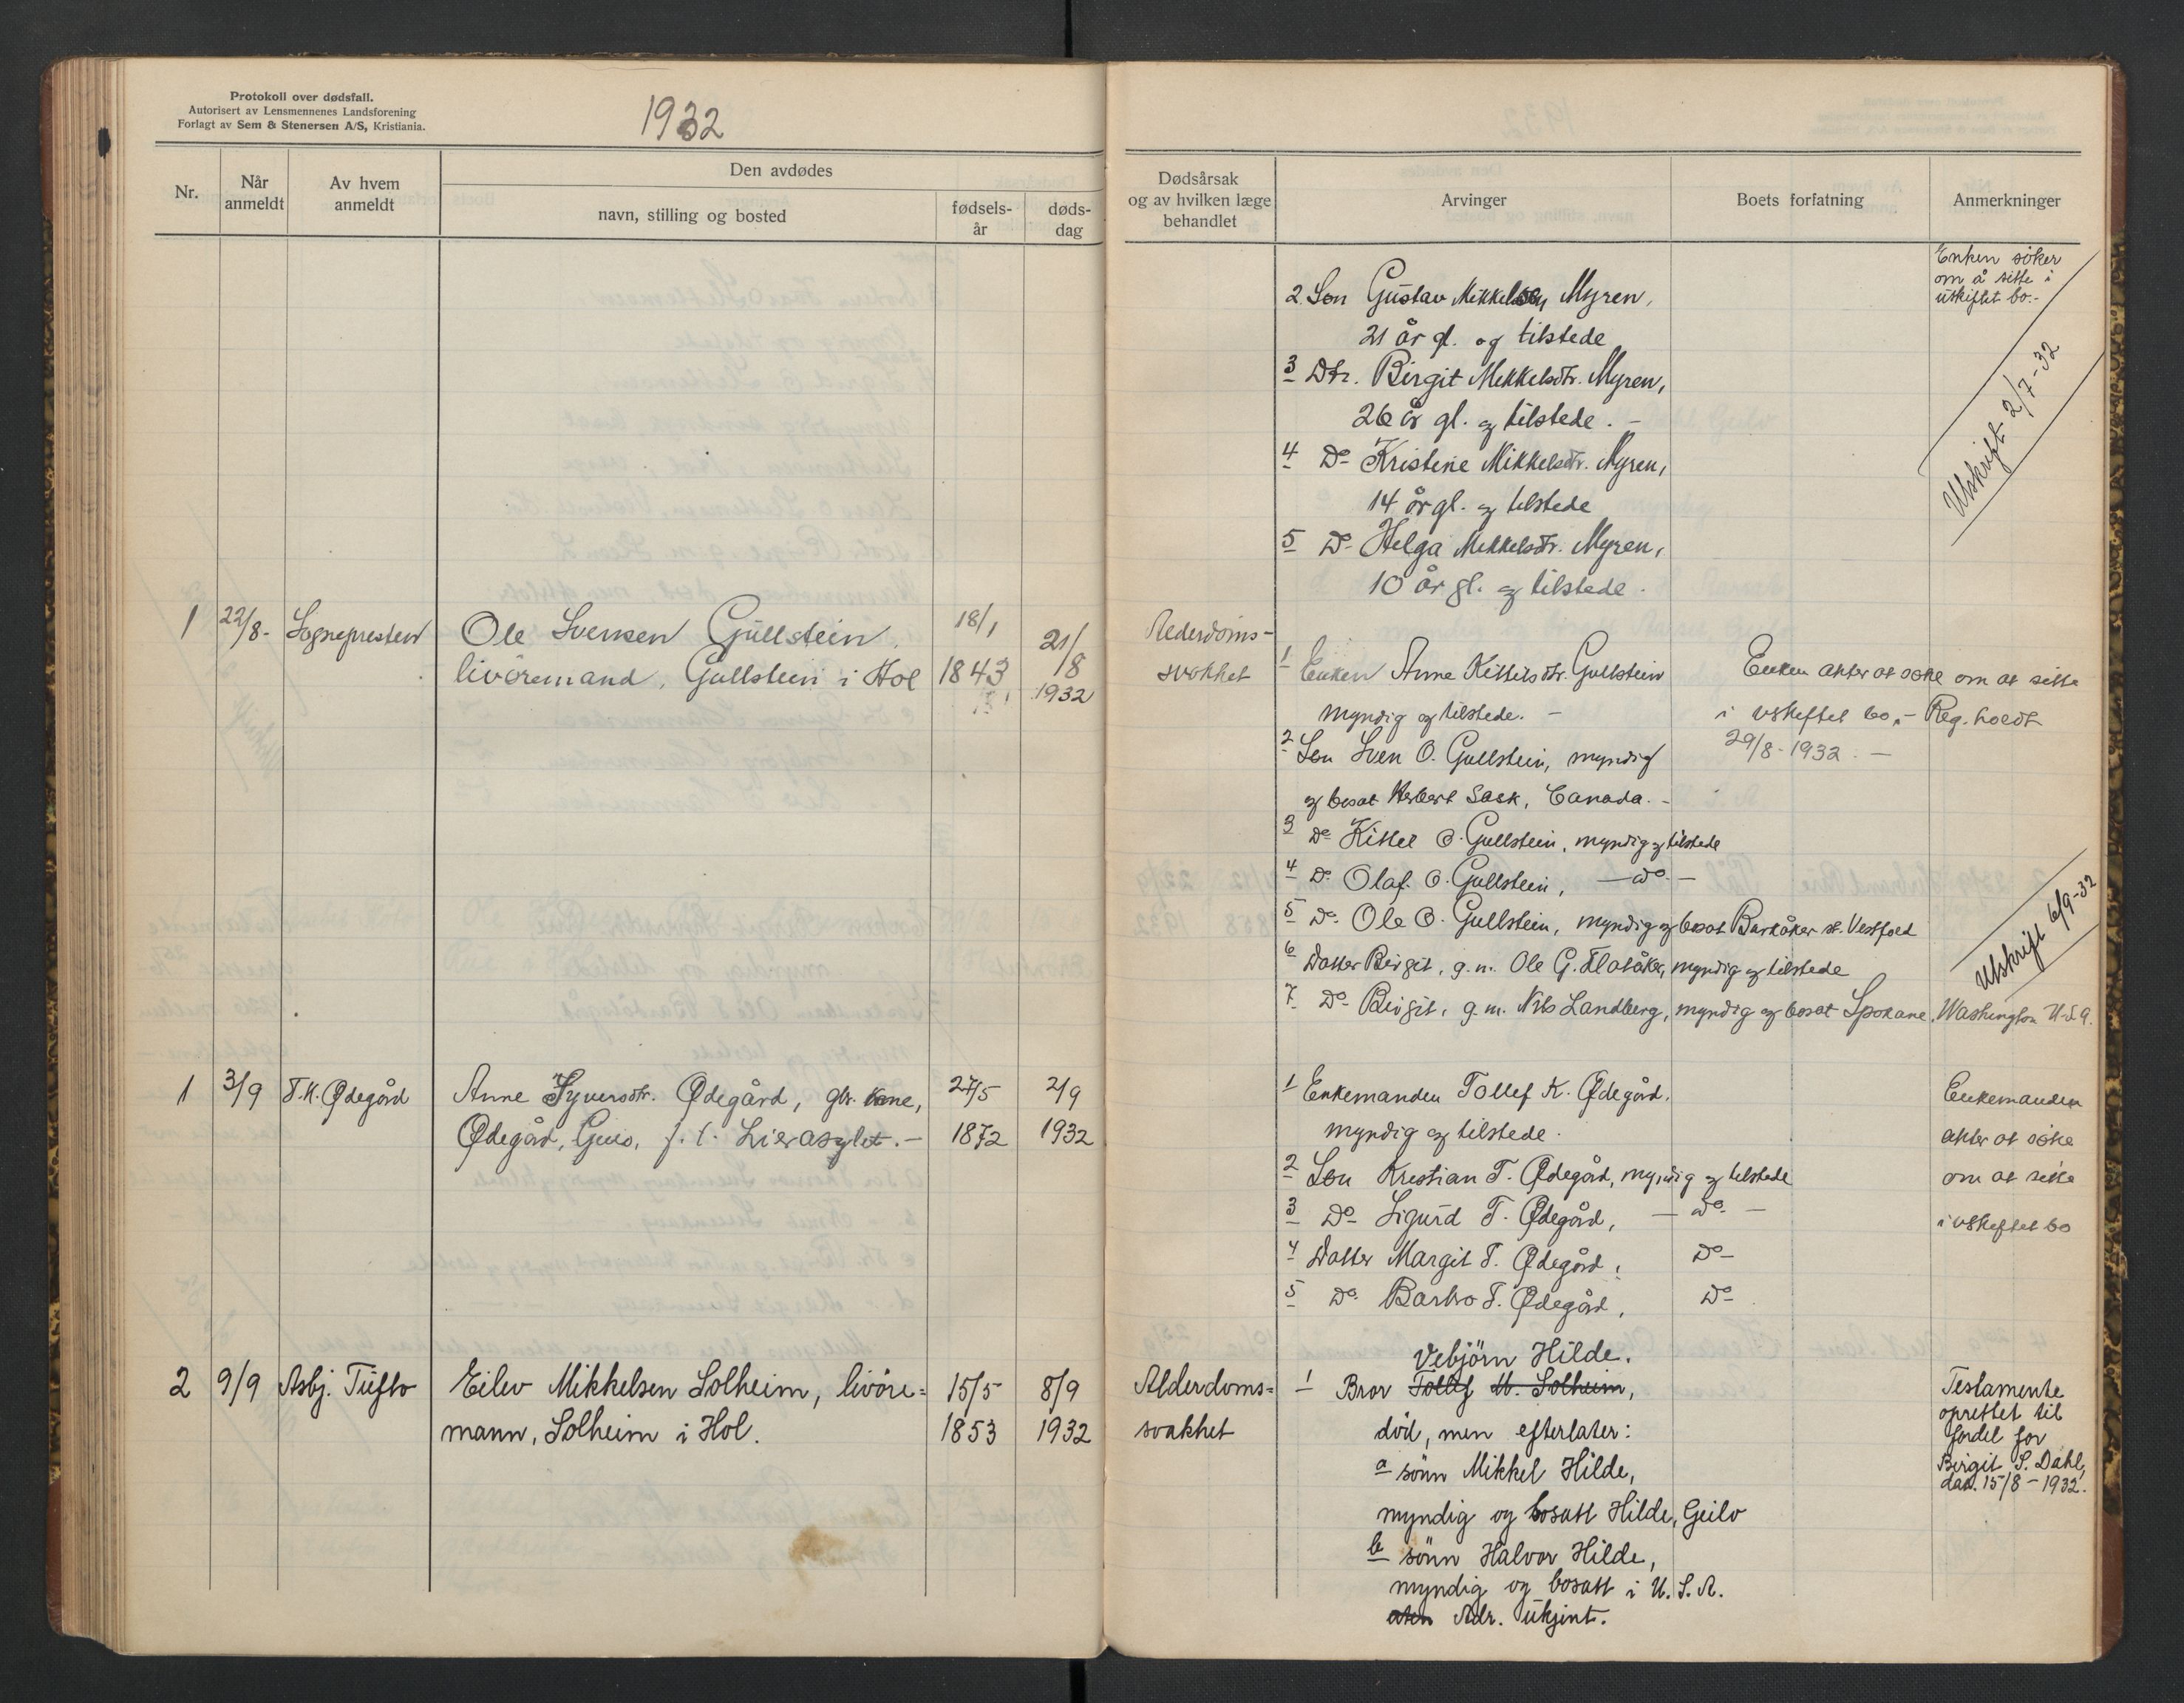 Protokoll over dødsfall.
Autorisert av Lensmennenes Landsforening
Forlagt av Sem & Stenersen A/S, Kristiania.
1932
Nr.
Når anmeldt
Av hvem anmeldt
Den avdødes
navn, stilling og bosted
fødsels-år
døds-dag
Dødsårsak
og av hvilken læge
behandlet
Arvinger
Boets forfatning
Anmerkninger
Enken søker
om å sitte i
uskiftet bo.-
Utskrift 2/7-32
2 Søn Gustav Mikkelsen Myren,
21 år gl. og tilstede
3 Dtr. Birgit Mikkelsdtr. Myren,
26 år gl. og tilstede. -
4 Do- Kristine Mikkelsdtr. Myren,
14 år gl. og tilstede
5 Do- Helga Mikkelsdtr. Myren,
10 år gl. og tilstede.
1 22/8- Sognepresten Ole Svensen Gullstein, 18/1 21/8
livøremand, Gullstein i Hol 1843 1932
Alderdoms-
svakhet
1 Enken Anne Kittilsdtr. Gullstein
myndig og tilstede. -
Enken akter at søke om at sitte
i uskiftet bo. - Reg. holdt
29/8-1932. -
2 Søn Sven O. Gullstein, myndig
og bosat Herbert Sask, Canada. -
3 Do Kittel O. Gullstein, myndig og tilstede
4 Do Olaf O. Gullstein, - do. -
5 Do. Ole O. Gullstein, myndig og bosat Barkåker st. Vestfold
6 Datter Birgit, g.m. Ole G. Flatåker, myndig og tilstede
7 Do- Birgit, g.m. Nils Landberg, myndig og bosat Spokane, Washington U.S.A.
Utskrift 6/9-32
1 3/9 T.K. Ødegård Anne Syversdtr. Ødegård, gbr. kone, 27/5 2/9
Ødegård, Geilo, f. t. Lierasylet. - 1872 1932
1 Enkemanden Tollef K. Ødegård,
myndig og tilstede.
2 Søn Kristian T. Ødegård, myndig og tilstede
3 Do- Sigurd T. Ødegård, - do. -
4 Datter Margit T. Ødegård, Do-
5 Do. Barbro T. Ødegård, Do-
Enkemanden
akter at søke
om at sitte
i uskiftet bo
2 9/9 Asbj. Tufto Eilev Mikkelsen Solheim, livøre= 15/5 8/9
mann, Solheim i Hol. 1853 1932
Alderdoms=
svakhet
Vebjörn Hilde.
1 Bror Tollef M. Solheim,
död, men efterlater:
a sönn Mikkel Hilde,
myndig og bosatt Hilde, Geilo
b sönn Halvor Hilde,
myndig og bosatt i U.S.A.
Adr. ukjent.
Testamente
oprettet til
fordel for
Birgit S. Dahl,
dat. 15/8-1932.